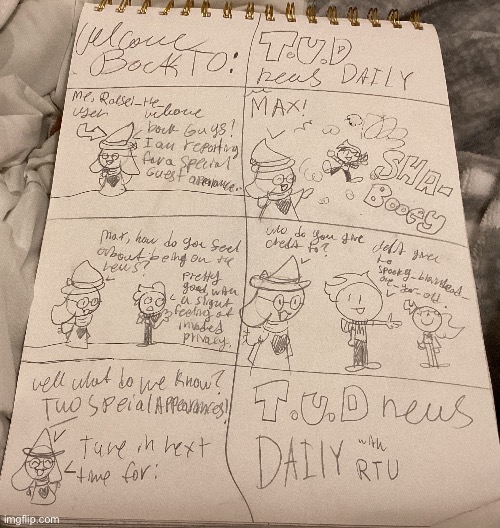 Welcome
Back TO:
T.U.D
news DAILY
Me, Ralsei_the_
user
welcome
back Guys!
I am reporting
for a special
Guest appearance.
MAX!
SHA-
BOOEY
max, how do you feel
about being on the
news?
pretty
good, with
a slight
feeling of
invaded
privacy.
who do you give
credit to?
well what do we know?
TWO Speial APPearances!!
Tune in next
time for:
T.U.D news
DAILY with
RTU
imgflip.com